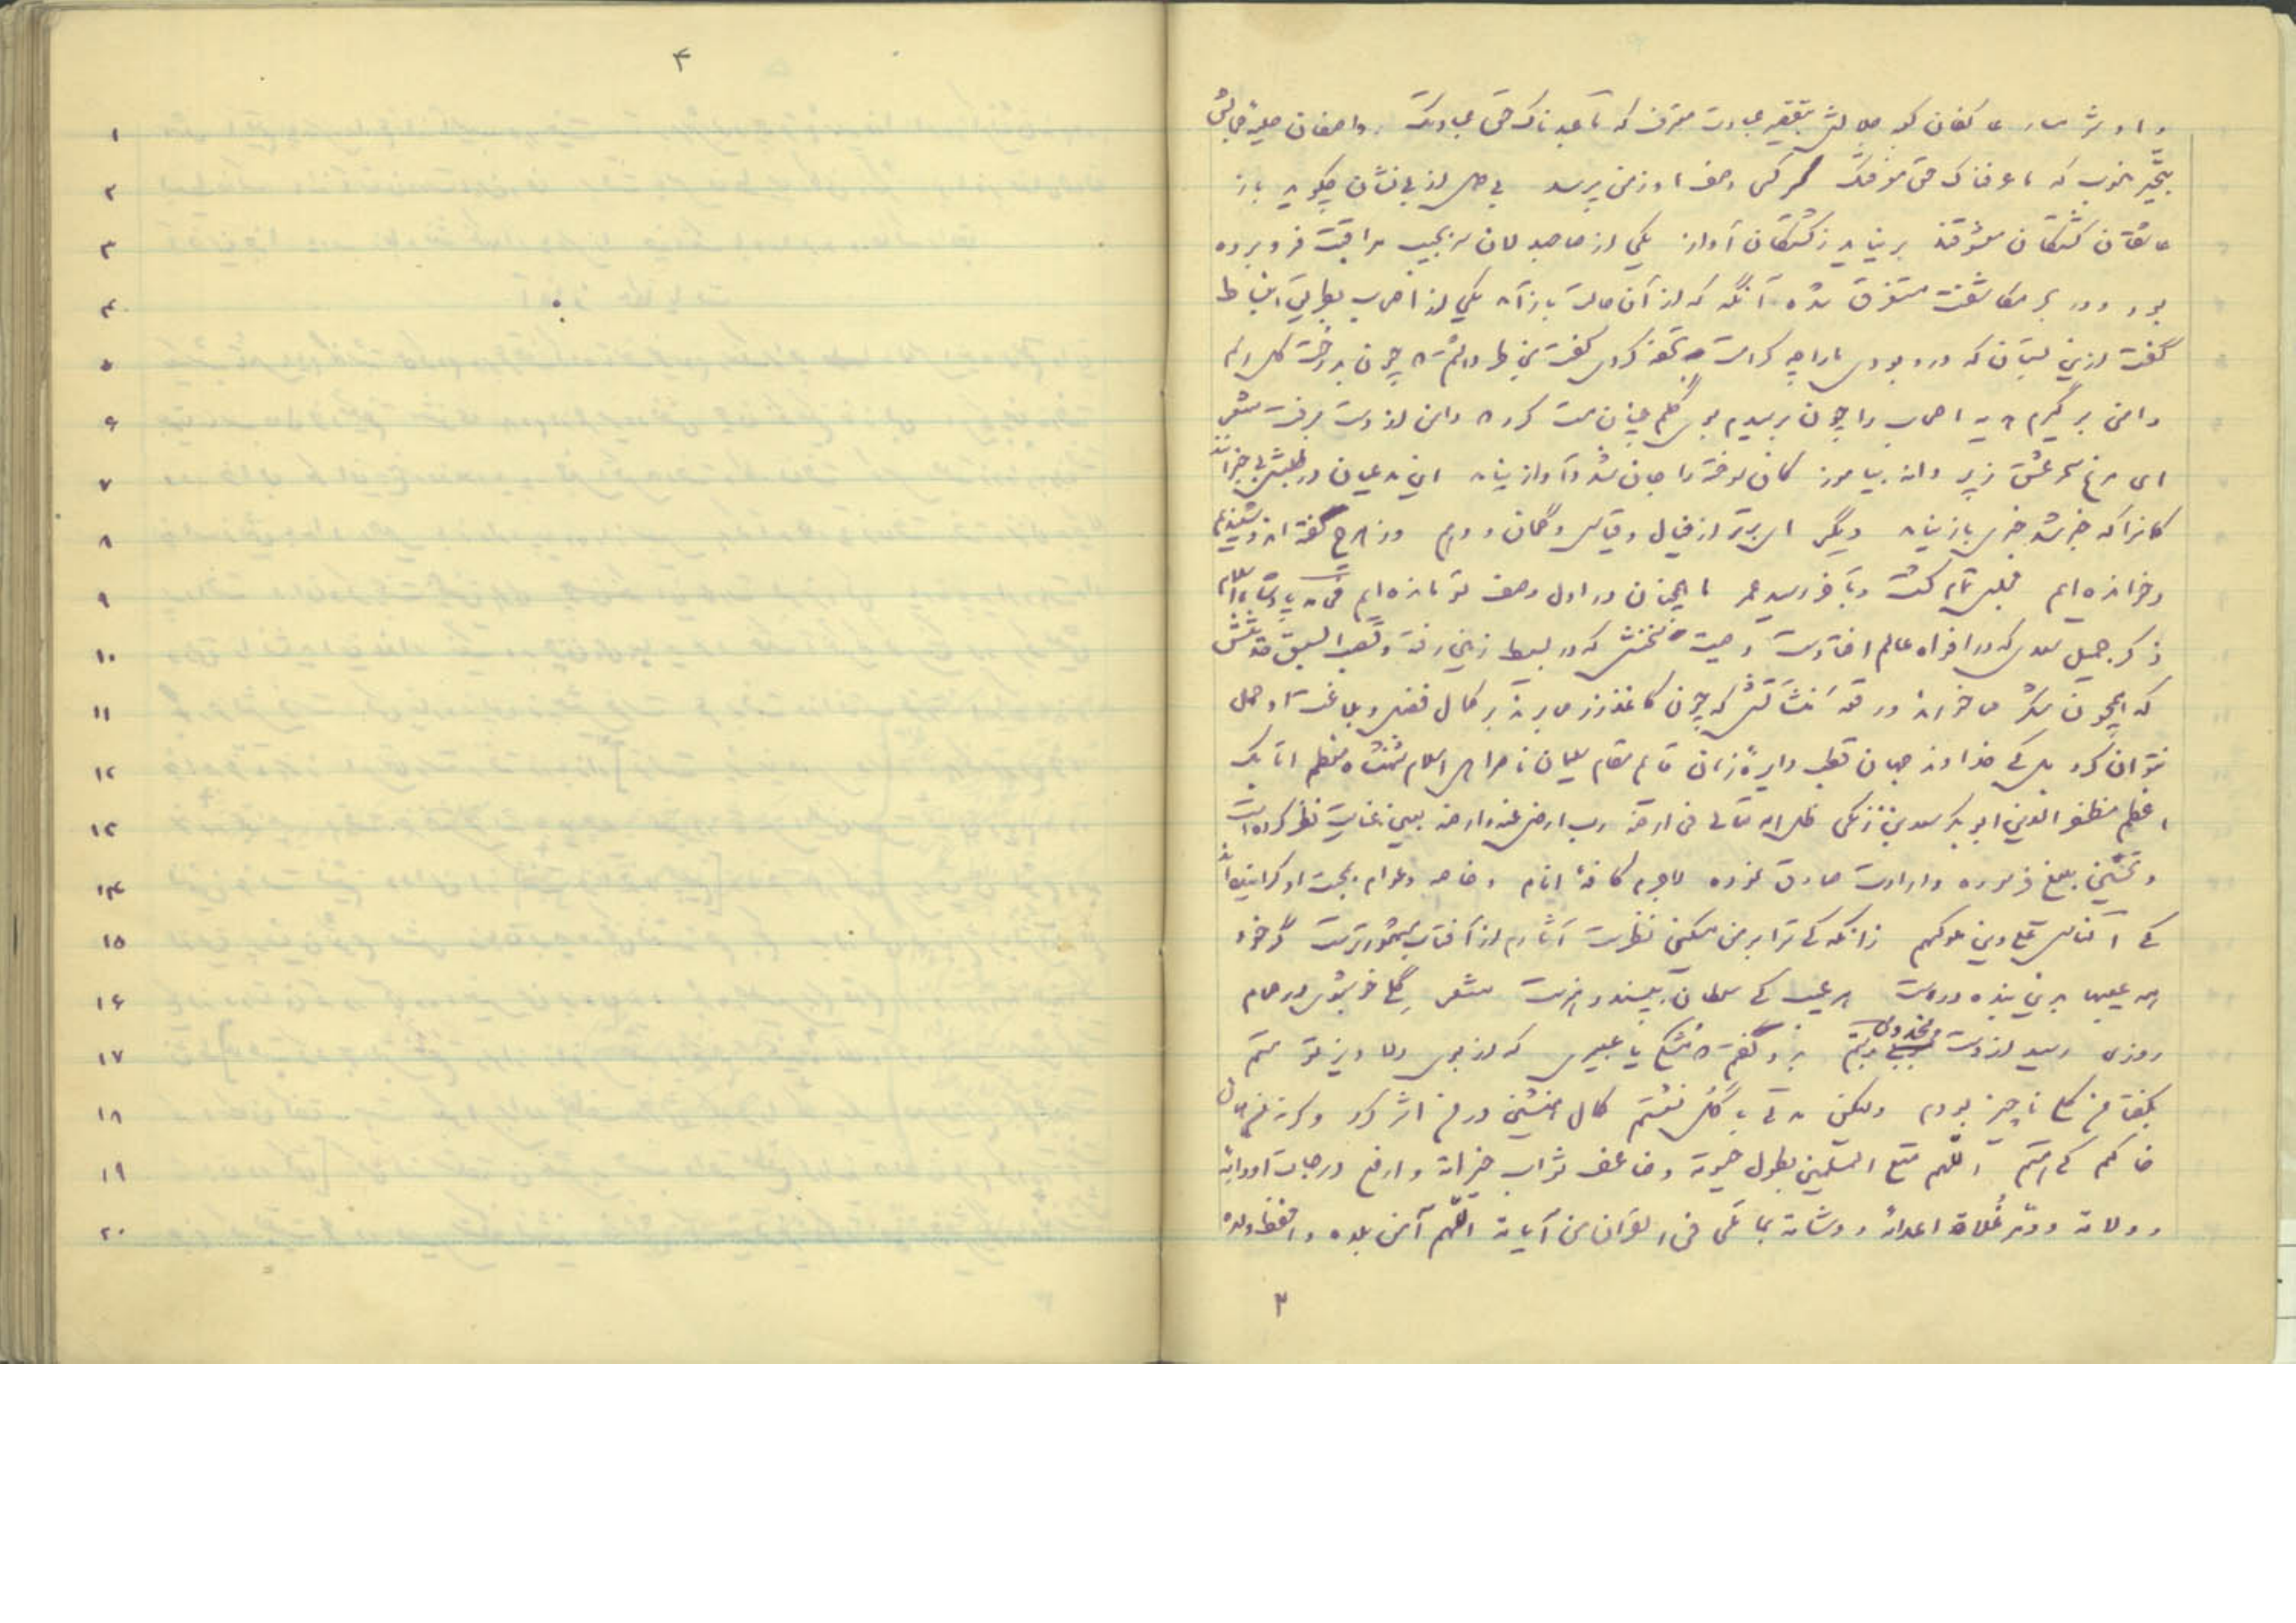 ۳
و او شرمسار عاکفان کعبه جلالش بتقصیر عبادت معترف که ما عبدناک حق عبادتک و واصفان حلیه جمالش
بتحیر منسوب که ما عرفناک حق معرفتک گر کسی وصف او ز من پرسد بی دل از بی نشان چگوید باز
عاشقان کشتگان معشوقند بر نیاید ز کشتگان آواز یکی از صاحبدلان سر بجیب مراقبت فرو برده
بود و در بحر مکاشفت مستغرق شده آنگه که از آن حالت باز آمد یکی از اصحاب بطریق انبساط
گفت ازین بستان که در و بودی ما را چه کرامت تحفه کردی گفت بخاطر داشتم چون بدرخت گل رسم
دامنی پر گیرم هدیه اصحاب را چون برسیدم بوی گلم چنان مست کرد دامن از دست برفت شعر
ای مرغ سحر عشق ز پروانه بیاموز کان سوخته را جان شد و آواز نیامد این مدعیان در طلبش بی خبرانند
کانرا که خبر شد خبری باز نیامد دیگر ای برتر از خیال و قیاس و گمان و وهم وز هرچ گفته اند و شنیدیم
و خوانده ایم مجلس تمام گشت و بآخر رسید عمر ما همچنان در اول وصف تو مانده ایم فی پادشاه اسلام
ذکر جمیل سعدی که در افواه عالم افتادست وصیت سخنش که در بسیط زمین رفته و قصب السبق حدیثش
که همچون شکر می خورند و رقعه منشآتش که چون کاغذ زر می برند بر کمال فضل و بلاغت او حمل
نتوان کرد بلکی خداوند جهان قطب دایرهٔ زمان قایم مقام سلیمان ناصر اهل اسلام شهنشاه معظم اتابک
اعظم مظفر الدین ابو بکر سعد بن زنگی ظل الله تعالی فی ارضه رب ارض عنه و ارضه بعین عنایت نظر کرده است
و تحسین بلیغ فرموده و ارادت صادق نموده لاجرم کافهٔ انام و خاصه و عوام بمحبت او گراینده اند
کی الناس علی دین ملوکهم زانگه کی ترا بر من مسکین نظرست آثارم از آفتاب مشهورترست گر خود
همه عیبها بدین بنده درست هر عیب کی سلطان بپسندد هنرست شعر گلی خوشبوی در حمام
روزی رسید از دست مخدومی بدستم بدو گفتم که مشکی یا عبیری که از بوی دلاویز تو مستم
بگفتا من گلی ناچیز بودم ولیکن مدتی با گل نشستم کمال همنشین در من اثر کرد وگرنه من همان
خاکم کی هستم اللهم متع المسلمین بطول حیوته وضاعف ثواب خیراته وارفع درجات اودائه
و ولاته و دمر علاة اعدائه و وشاته بما تلی فی القرآن من آیاته اللهم آمن بلده واحفظ ولده
۴
۱
۲
۳
۴
۵
۶
۷
۸
۹
۱۰
۱۱
۱۲
۱۳
۱۴
۱۵
۱۶
۱۷
۱۸
۱۹
۲۰